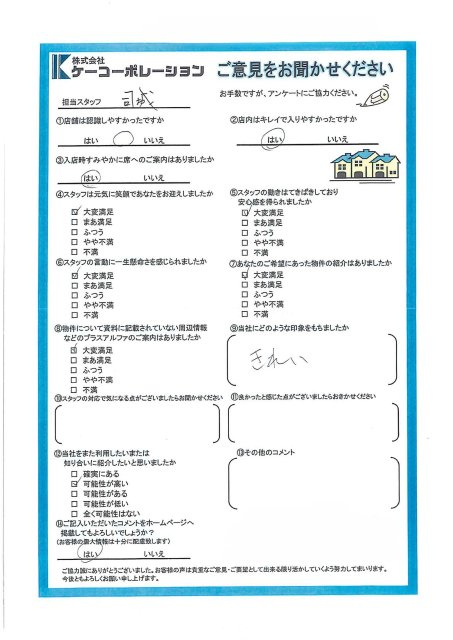 株式会社
ケーコーポレーション ご意見をお聞かせください
担当スタッフ 司城
お手数ですが、アンケートにご協力ください。
①店舗は認識しやすかったですか
はい いいえ
②店内はキレイで入りやすかったですか
はい いいえ
③入店時すみやかに席へのご案内はありましたか
はい いいえ
④スタッフは元気に笑顔であなたをお迎えしましたか
大変満足
まあ満足
ふつう
やや不満
不満
⑤スタッフの動きはてきぱきしており
安心感を得られましたか
大変満足
まあ満足
ふつう
やや不満
不満
⑥スタッフの言動に一生懸命さを感じられましたか
大変満足
まあ満足
ふつう
やや不満
不満
⑦あなたのご希望にあった物件の紹介はありましたか
大変満足
まあ満足
ふつう
やや不満
不満
⑧物件について資料に記載されていない周辺情報
などのプラスアルファのご案内はありましたか
大変満足
まあ満足
ふつう
やや不満
不満
⑨当社にどのような印象をもちましたか
きれい
⑩スタッフの対応で気になる点がございましたらお聞かせください
⑪良かったと感じた点がございましたらおきかせください
⑫当社をまた利用したいまたは
知り合いに紹介したいと思いましたか
確実にある
可能性が高い
可能性がある
可能性が低い
全く可能性はない
⑬その他のコメント
⑭ご記入いただいたコメントをホームページへ
掲載してもよろしいでしょうか?
(お客様の個人情報は十分に配慮致します)
はい いいえ
ご協力誠にありがとうございました。お客様の声は貴重なご意見・ご要望として出来る限り活かしていくよう努力してまいります。
今後ともよろしくお願い申し上げます。